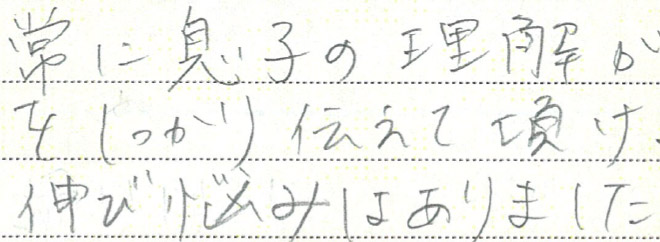 常に息子の理解が
をしっかり伝えて頂け
伸び悩みはありました